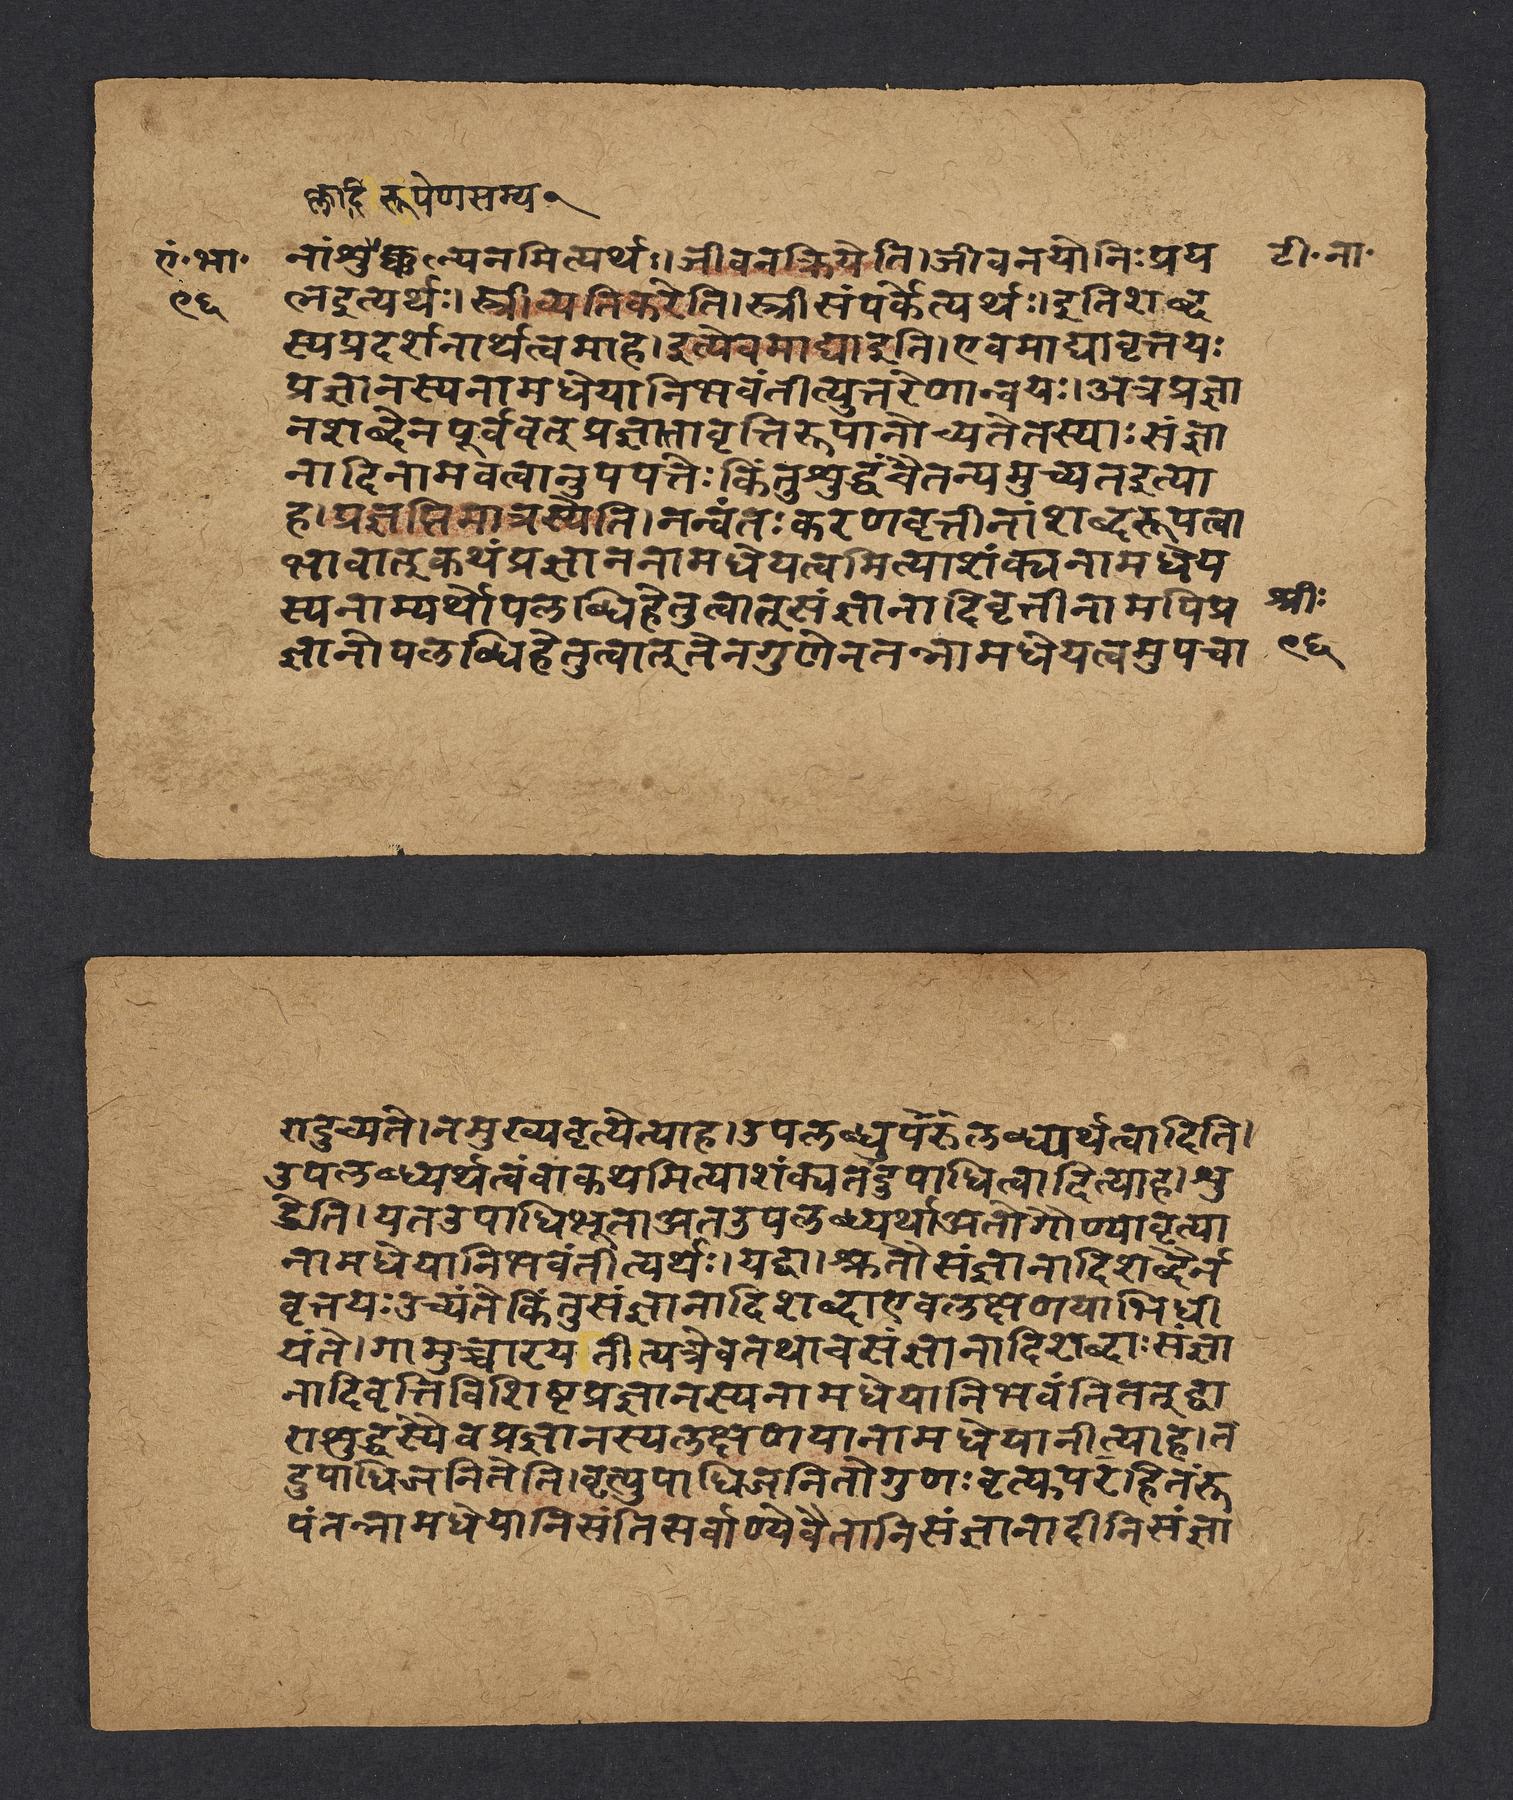 क्लादि रूपेणसम्य॰१
नांशुक्लकल्पनमित्यर्थः।जीवनक्रियेति।जीवनयोनिःप्रय
ऐ॰भा॰
टी॰ना॰
९६
त्नइत्यर्थः।स्त्रीव्यतिकरेति।स्त्रीसंपर्केत्यर्थः।इतिशब्द
स्यप्रदर्शनार्थत्वमाह।इत्येवमाद्याइति।एवमाद्यावृत्तयः
प्रज्ञानस्यनामधेयानिभवंतीत्युत्तरेणान्वयः।अत्रप्रज्ञा
नशब्देनपूर्ववत्प्रज्ञातावृत्तिरूपानोच्यतेतस्याःसंज्ञा
नादिनामवत्वानुपपत्तेःकिंतुशुद्धंचैतन्यमुच्यतइत्या
ह।प्रज्ञप्तिमात्रस्येति।नन्वंतःकरणवृत्तीनांशब्दरूपत्वा
भावात्कथंप्रज्ञाननामधेयत्वमित्याशंक्यनामधेय
स्यनाम्यर्थोपलब्धिहेतुत्वात्संज्ञानादिवृत्तीनामपिप्र
श्रीः
ज्ञानोपलब्धिहेतुत्वात्तेनगुणेनतन्नामधेयत्वमुपचा
९६
रादुच्यते।नमुख्यवृत्येत्याह।उपलब्धुरुपलब्ध्यर्थत्वादिति।
उपलब्ध्यर्थत्वंवाकथमित्याशंक्यतदुपाधित्वादित्याह।शु
द्धेति।यतउपाधिभूताअतउपलब्ध्यर्थाअतोगौण्यावृत्या
नामधेयानिभवंतीत्यर्थः।यद्वा।श्रुतौसंज्ञानादिशब्दैर्न
वृत्तयःउच्यंतेकिंतुसंज्ञानादिशब्दाएवलक्षणयाभिधी
यंते।गामुच्चारयतीत्यत्रेवतथाचसंज्ञानादिशब्दाःसंज्ञा
नादिवृत्तिविशिष्टप्रज्ञानस्यनामधेयानिभवंतितत्द्वा
राशुद्धस्यैवप्रज्ञानस्यलक्षणयानामधेयानीत्याह।त
दुपाधिजनितेति।वृत्युपाधिजनितोगुणःवृत्त्युपरहितंरू
पंतन्नामधेयानिसंतिसर्वाण्येवैतानिसंज्ञानादीनिसंज्ञा